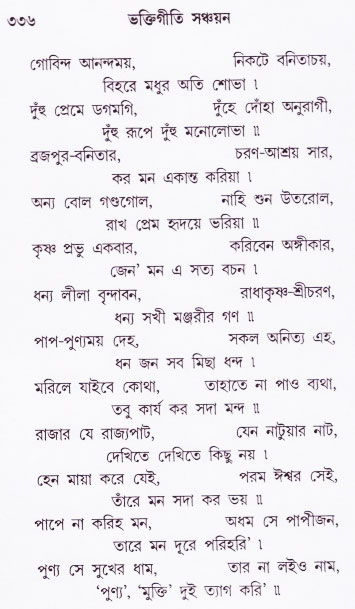 ৩৩৬ ভক্তিগীতি সঞ্চয়ন
গোবিন্দ আনন্দময়, নিকটে বনিতাচয়,
বিহরে মধুর অতি শোভা ৷
দুঁহু প্রেমে ডগমগি, দুঁহে দোঁহা অনুরাগী,
দুঁহু রূপে দুঁহু মনোলোভা ৷৷
ব্রজপুর-বনিতার, চরণ-আশ্রয় সার,
কর মন একান্ত করিয়া ৷
অন্য বোল গণ্ডগোল, নাহি শুন উতরোল,
রাখ প্রেম হৃদয়ে ভরিয়া ৷৷
কৃষ্ণ প্রভু একবার, করিবেন অঙ্গীকার,
জেন’ মন এ সত্য বচন ৷
ধন্য লীলা বৃন্দাবন, রাধাকৃষ্ণ-শ্রীচরণ,
ধন্য সখী মঞ্জরীর গণ ৷৷
পাপ-পুণ্যময় দেহ, সকল অনিত্য এহ,
ধন জন সব মিছা ধন্দ ৷
মরিলে যাইবে কোথা, তাহাতে না পাও ব্যথা,
তবু কার্য কর সদা মন্দ ৷৷
রাজার যে রাজ্যপাট, যেন নাটুয়ার নাট,
দেখিতে দেখিতে কিছু নয় ৷
হেন মায়া করে যেই, পরম ঈশ্বর সেই,
তাঁরে মন সদা কর ভয় ৷৷
পাপে না করিহ মন, অধম সে পাপীজন,
তারে মন দূরে পরিহরি’ ৷
পুণ্য সে সুখের ধাম, তার না লইও নাম,
‘পুণ্য’, ‘মুক্তি’ দুই ত্যাগ করি’ ৷৷